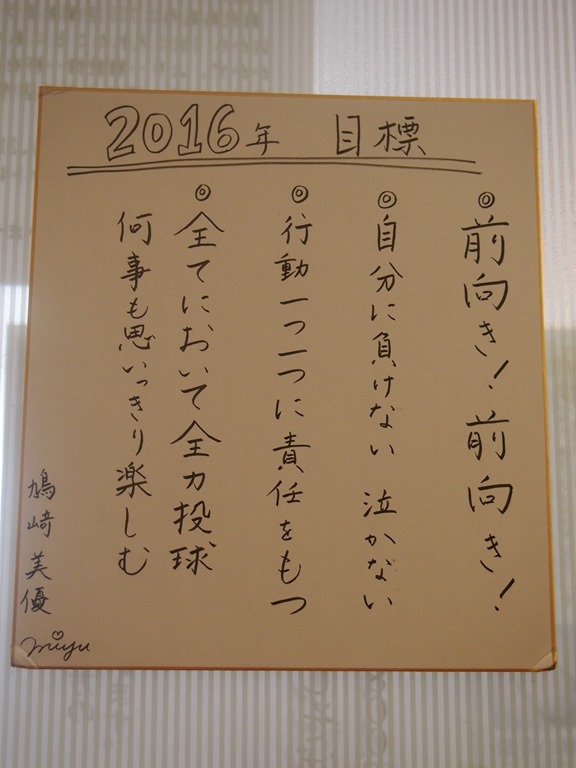 2016年 目標
◎前向き！前向き！
◎自分に負けない 泣かない
◎行動一つ一つに責任をもつ
◎全てにおいて全力投球
何事も思いっきり楽しむ
鳩﨑 美優
miyu